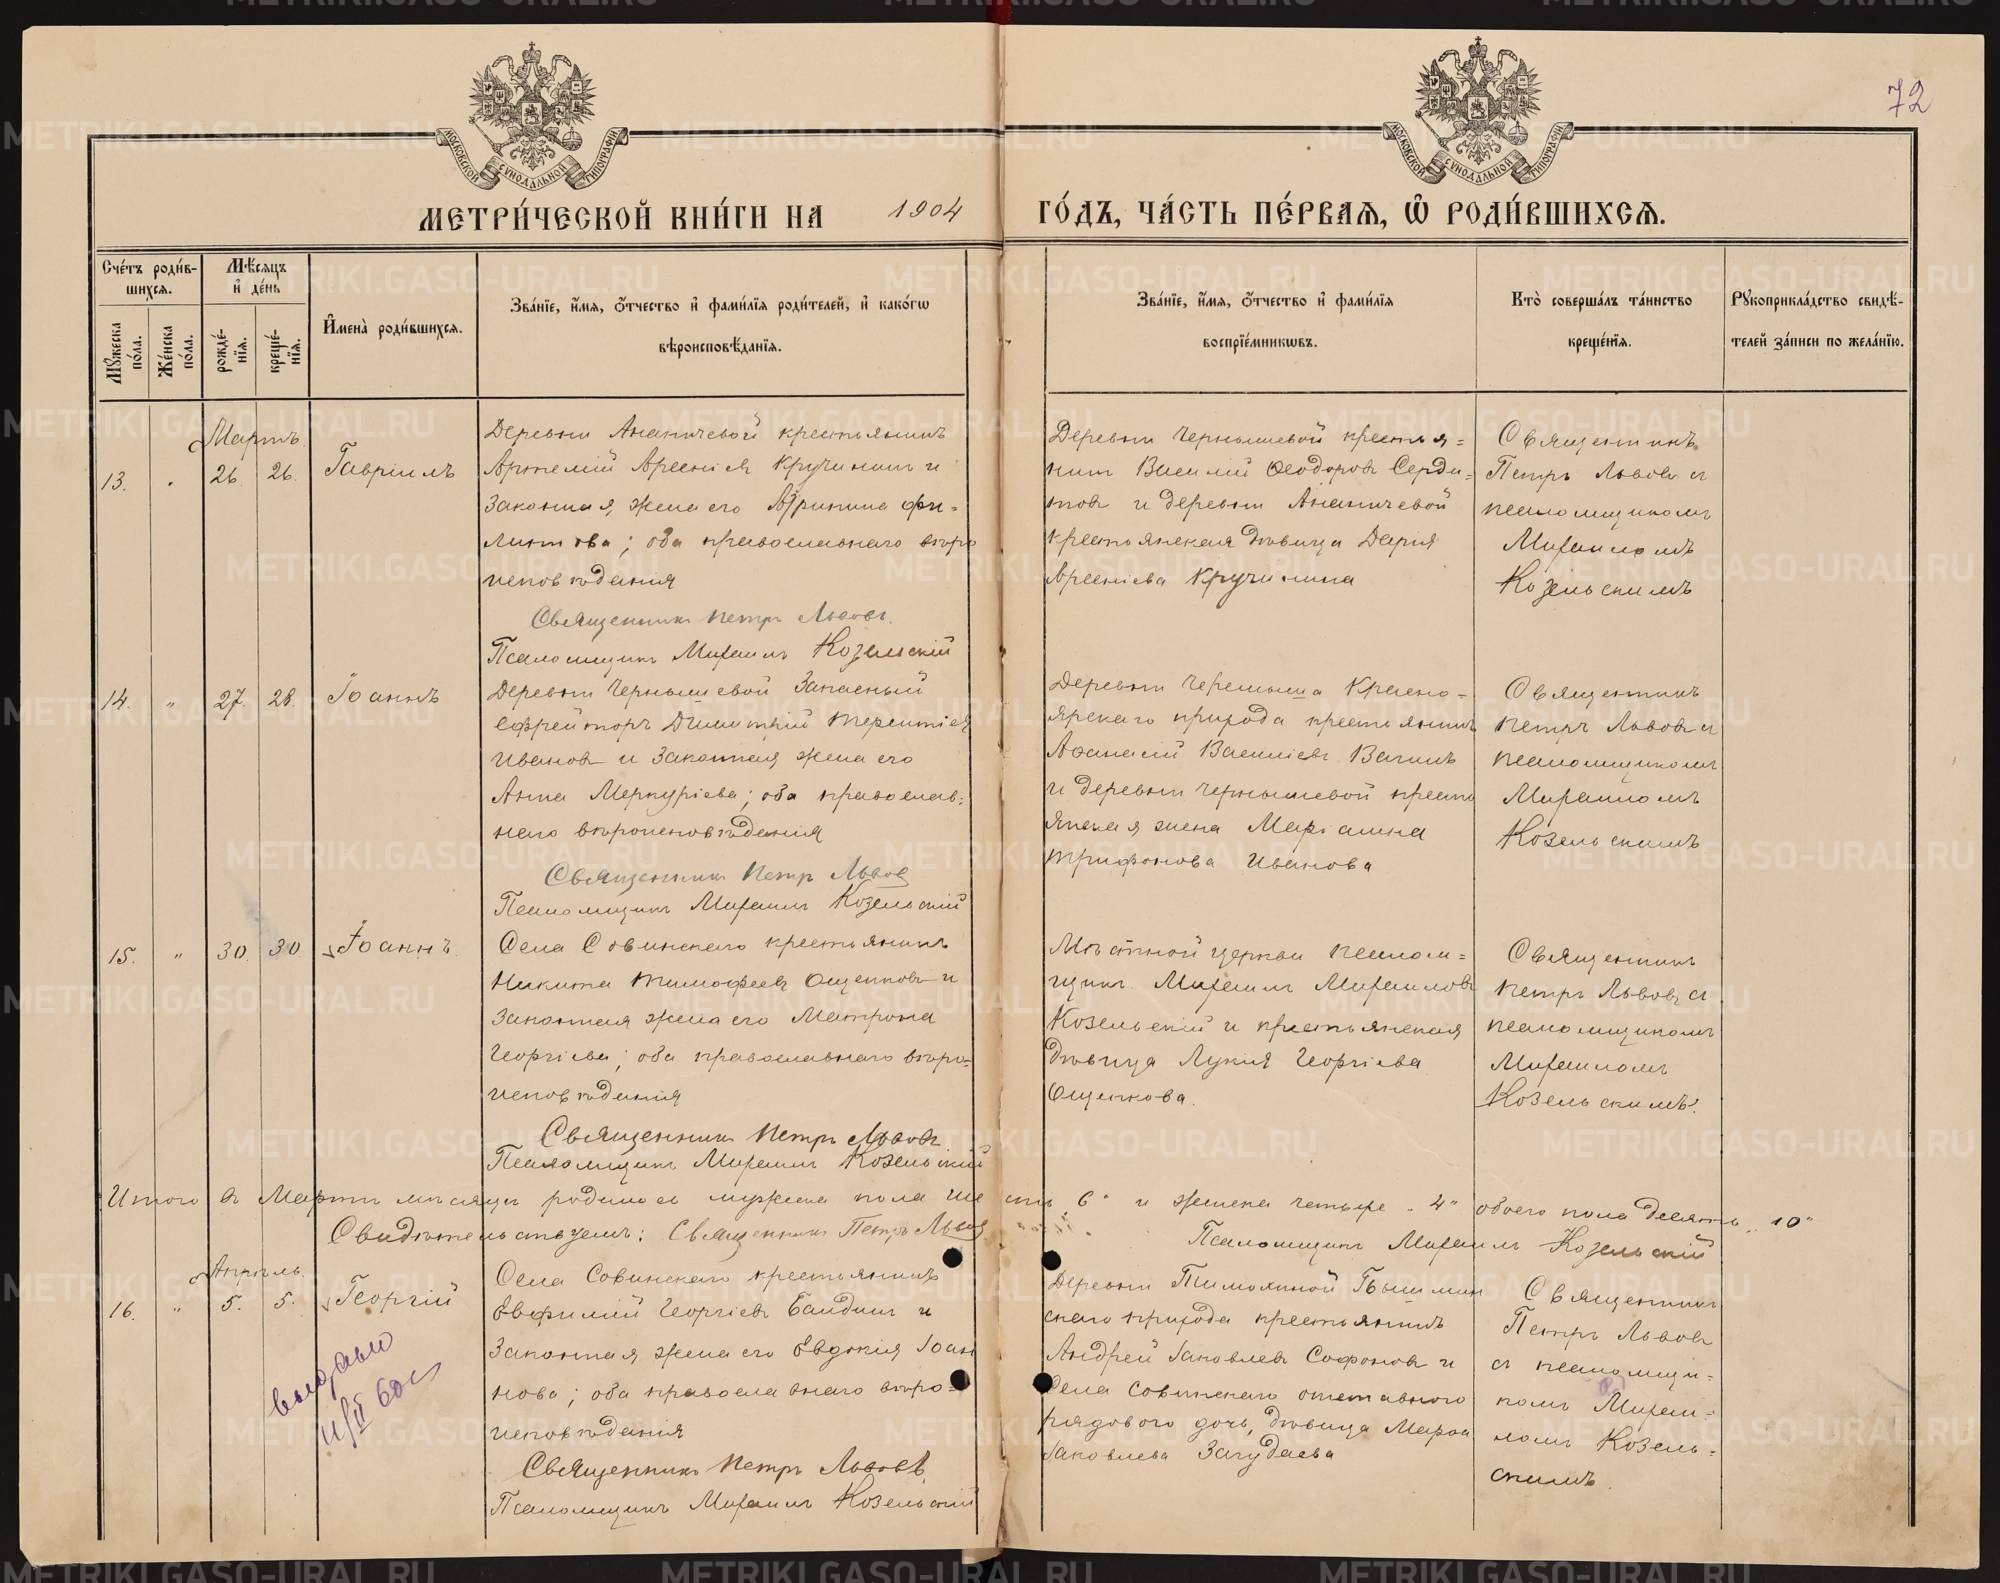 72
МОСКОВСКОЙ СѴНОДАЛЬНОЙ ТИПОГРАФІИ
МОСКОВСКОЙ СѴНОДАЛЬНОЙ ТИПОГРАФІИ
МЕТРИ́ЧЕСКОЙ КНИ́ГИ НА 1904 ГО́ДЪ, ЧА́СТЬ ПЕ́РВАѦ, Ѽ РОДИ́ВШИХСѦ.
Сче́тъ роди́в-
шихсѧ.
Мꙋ́жеска по́ла.
Же́нска по́ла.
Мѣ́сѧцъ и҆ де́нь
рожде́-
нїѧ.
креще́-
нїѧ.
И҆мена̀ роди́вшихсѧ.
Зва́нїе, и҆́мѧ, ѻ҆́тчество и҆ фами́лїѧ роди́телей, и҆ како́гѡ
вѣроисповѣ́данїѧ.
Зва́нїе, и҆́мѧ, ѻ҆́тчество и҆ фами́лїѧ
воспрїе́мникѡвъ.
Кто̀ соверша́лъ та́инство
креще́нїѧ.
Рꙋкоприкла́дство свидѣ́-
телей за́писи по жела́нїю.
Мартъ.
13. " 26. 26. Гавріилъ
Деревни Ананичевой крестьянинъ
Артемій Арсеніев Кручинин и
законная жена его Агрипина Фи-
липова; оба православнаго вѣро
исповѣданія
Священникъ Петръ Львовъ.
Псаломщикъ Михаилъ Козельскій
Деревни Чернышевой крестья-
нин Василій Ѳеодоровъ Серди-
товъ и деревни Ананичевой
крестьянская дѣвица Дарія
Арсеніева Кручинина
Священникъ
Петръ Львовъ съ
псаломщикомъ
Михаиломъ
Козельскимъ
14. " 27. 28. Іоаннъ
Деревни Чернышевой Запасный
Ефрейторъ Димитрій Терентіев
Ивановъ и законная жена его
Анна Меркуріева; оба православ-
наго вѣроисповѣданія
Священникъ Петръ Львов
Псаломщикъ Михаилъ Козельскій
Деревни Черемыша Красно-
ярскаго прихода крестьянинъ
Аѳанасій Василіевъ Вагинъ
и деревни Чернышевой кресть
янская жена Маріанна
Трифонова Иванова
Священникъ
Петръ Львовъ съ
псаломщикомъ
Михаиломъ
Козельскимъ
15. " 30. 30. Іоаннъ.
Села Совинскаго крестьянинъ
Никита Тимофеевъ Ощепковъ и
законная жена его Матрона
Георгіева; оба православнаго вѣро-
исповѣданія
Священникъ Петръ Львовъ
Псаломщикъ Михаилъ Козельскій
Мѣстной церкви псалом-
щикъ Михаилъ Михаиловъ
Козельскій и крестьянская
дѣвица Лукія Георгіева
Ощепкова.
Священникъ
Петръ Львовъ съ
псаломщикомъ
Михаиломъ
Козельскимъ.
Итого въ Мартѣ мѣсяцѣ родилось мужеска пола шесть „6" и женска четыре „4" обоего пола десять „10"
Свидѣтельствуемъ: Священникъ Петръ Львов
Псаломщикъ Михаилъ Козельскій
Апрѣль.
16. " 5. 5. Георгій
Села Совинскаго крестьянинъ
Евфимій Георгіевъ Бандинъ и
законная жена его Евдокія Іоан
нова; оба православнаго вѣро-
исповѣданія
Священникъ Петръ Львовъ.
Псаломщикъ Михаилъ Козельскій
Деревни Тимохиной
скаго прихода крестьянинъ
Андрей Іаковлевъ Софоновъ и
Села Совинскаго отставного
рядового дочь, дѣвица Марѳа
Іаковлева Загудаева
Священникъ
Петръ Львовъ
съ псаломщи-
комъ Михаи-
ломъ Козель-
скимъ.
выдано
11/II 60 г.
METRIKI.GASO-URAL.RU